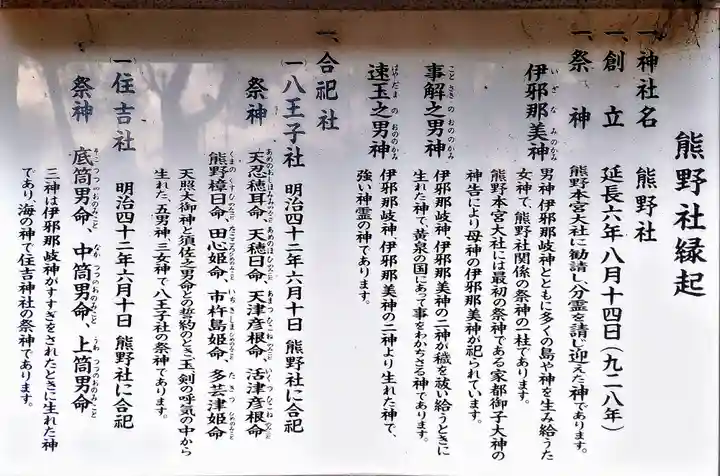 熊野社縁起
一、神社名 熊野社
一、創立 延長六年八月十四日(九二八年)
一、祭神 熊野本宮大社に勧請し分霊を請じ迎えた神であります。
伊邪那美神 男神 伊邪那岐神とともに多くの島や神を生み給うた
女神で、熊野社関係の祭神の一柱であります。
熊野本宮大社には最初の祭神である家都御子大神の
神告により母神の伊邪那美神が祀られています。
事解之男神 伊邪那岐神、伊邪那美神の二神が穢を祓い給うときに
生れた神で、黄泉の国にあって事をわかちさる神であります。
速玉之男神 伊邪那岐神、伊邪那美神の二神より生れた神で、
強い神霊の神であります。
一、合祀社
(一八王子社 明治四十二年六月十日 熊野社に合祀
祭神 天忍穂耳命、天穂日命、天津彦根命、活津彦根命
熊野樟日命、田心姫命、市杵島姫命、多芸津姫命
天照大御神と須佐之男命との誓約のとき玉、剣の呼気の中から
生れた、五男神、三女神で八王子社の祭神であります。
(一住吉社 明治四十二年六月十日 熊野社に合祀
祭神 底筒男命、中筒男命、上筒男命
三神は伊邪那岐神がすすぎをされたときに生れた神
であり、海の神で住吉神社の祭神であります。